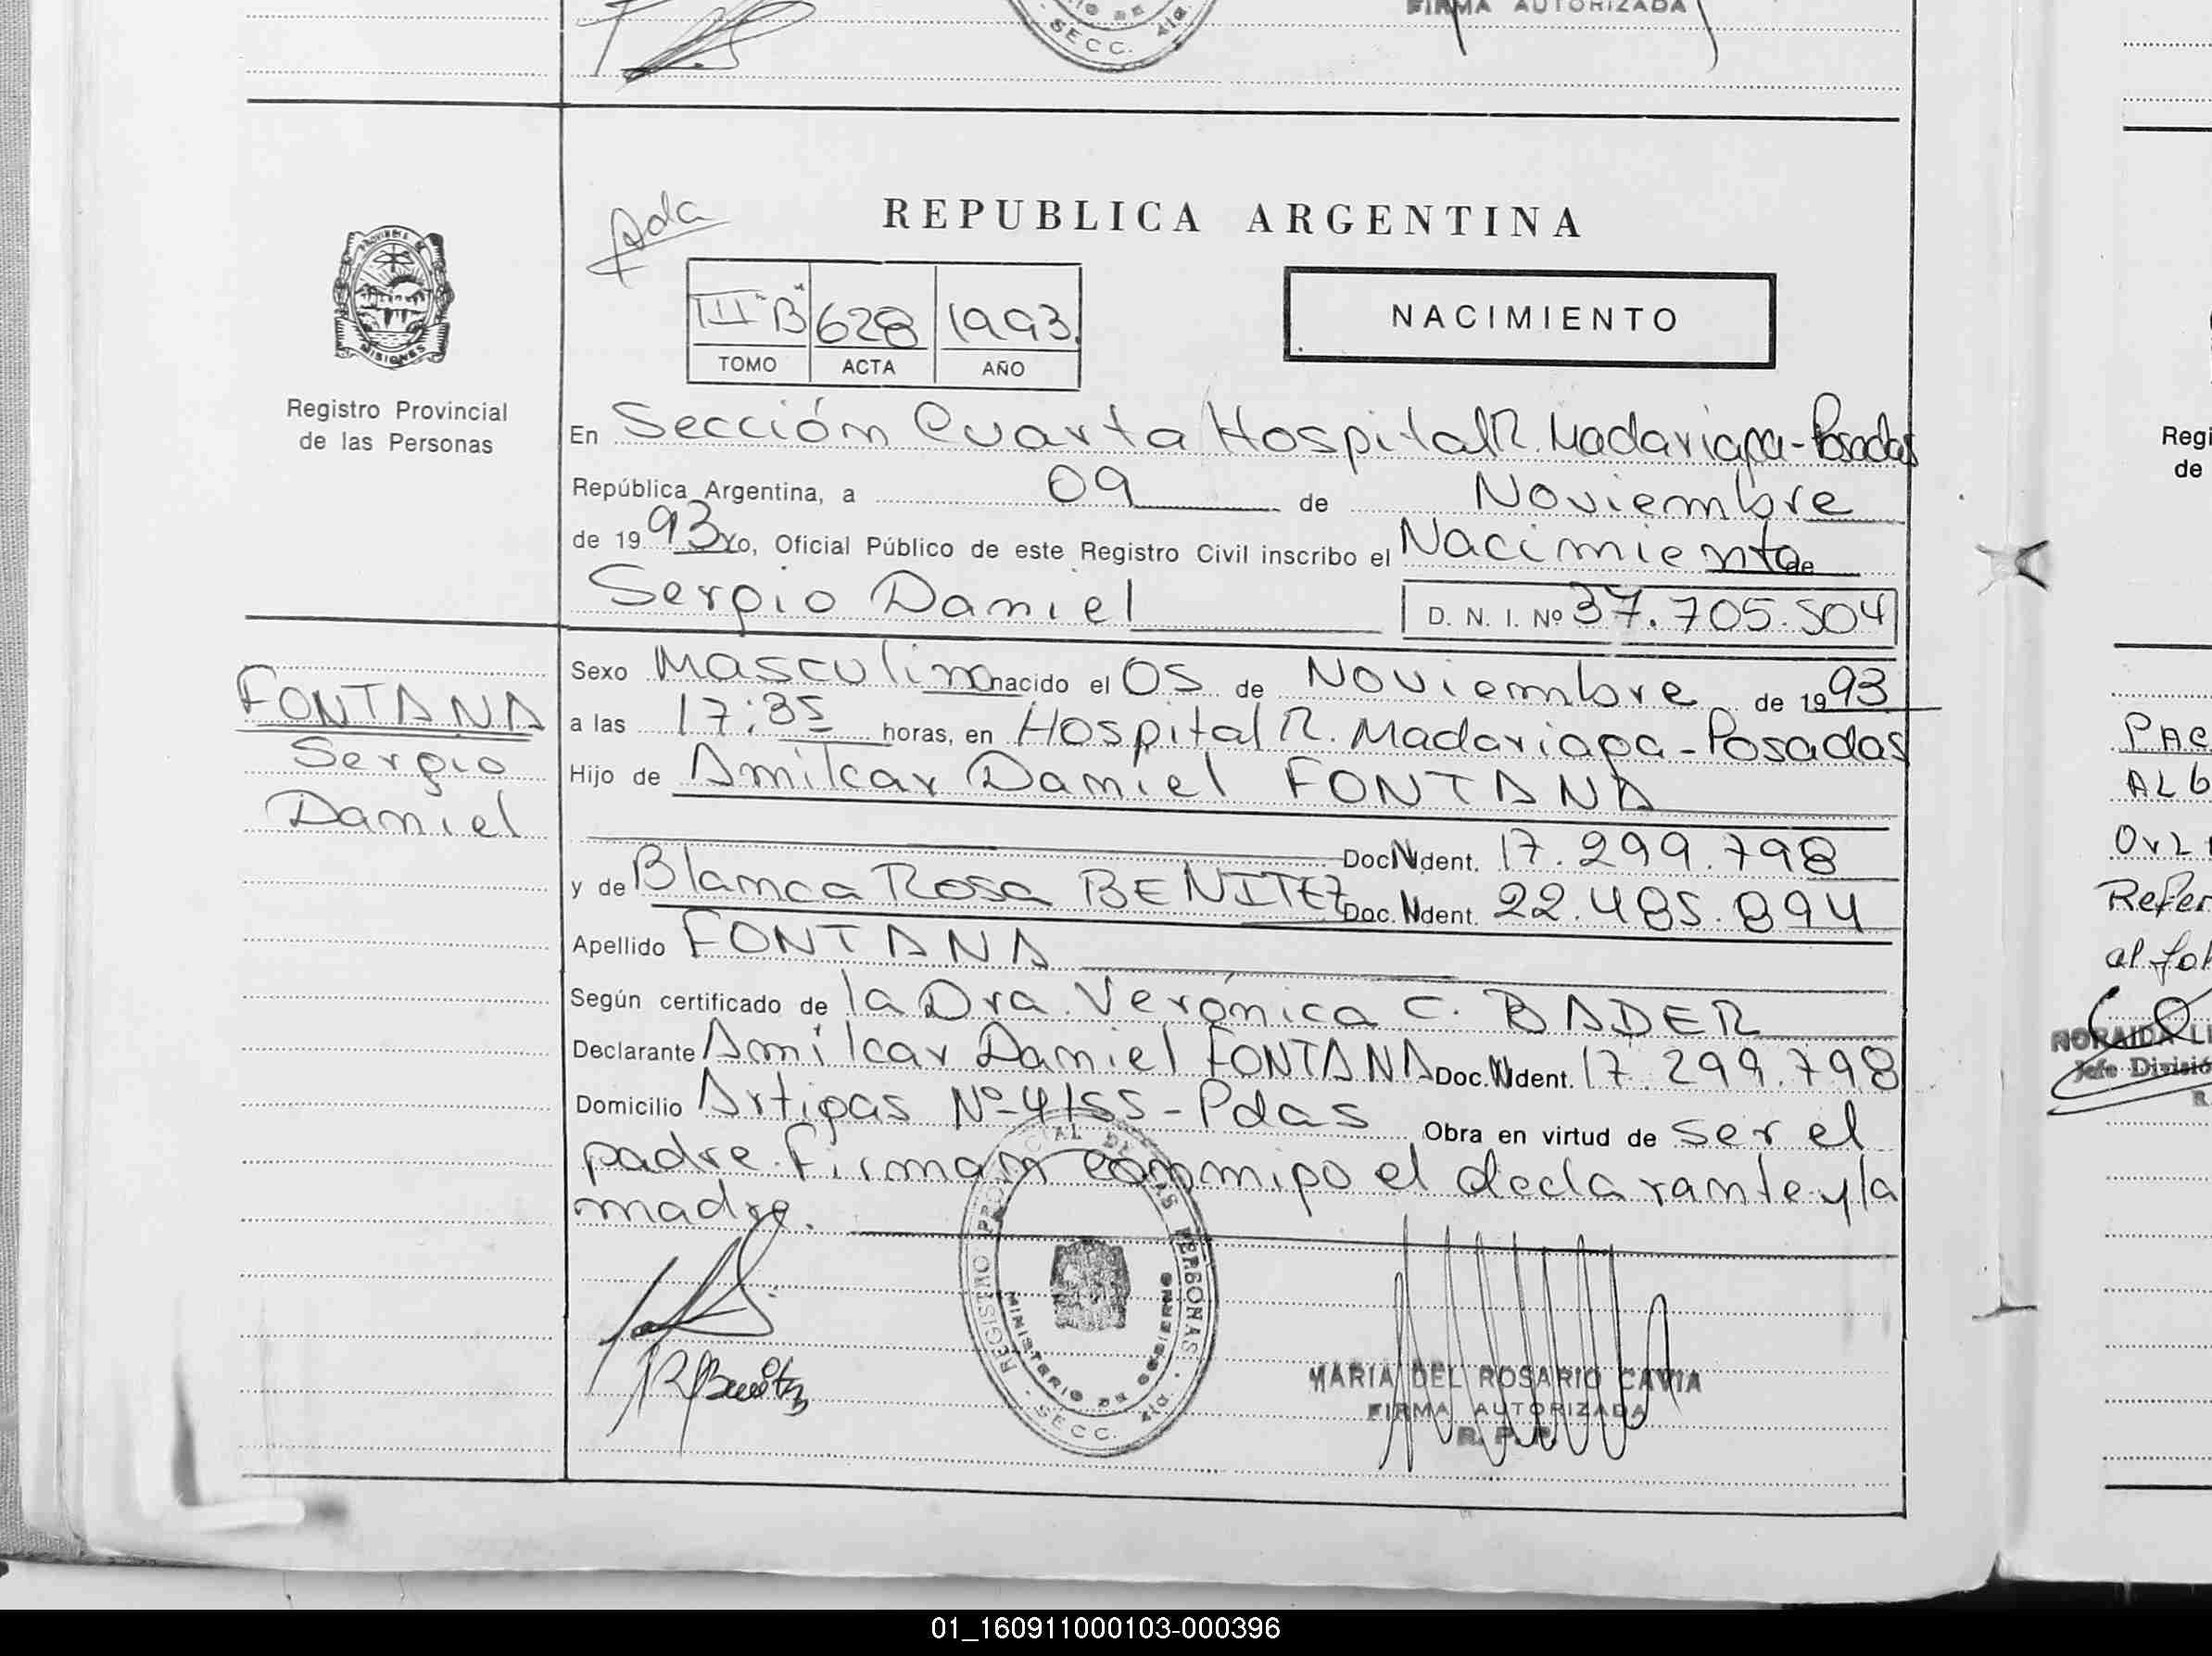 FIRMA AUTORIZADA
SECC. 4ta.
REPUBLICA ARGENTINA
III "B" 628 1993
TOMO ACTA AÑO
NACIMIENTO
PROVINCIA DE
MISIONES
Registro Provincial
de las Personas
En Sección Cuarta Hospital R. Madariaga - Posadas
República Argentina, a 09 de Noviembre
de 1993 Yo, Oficial Público de este Registro Civil inscribo el Nacimiento de
Sergio Daniel D. N. I. Nº 37.705.504
FONTANA
Sergio
Daniel
Sexo Masculino nacido el 05 de Noviembre de 1993
a las 17:35 horas, en Hospital R. Madariaga - Posadas
Hijo de Amilcar Daniel FONTANA
Doc. N ident. 17.299.798
y de Blanca Rosa BENITEZ Doc. N ident. 22.485.894
Apellido FONTANA
Según certificado de la Dra. Verónica C. BADER
Declarante Amilcar Daniel FONTANA Doc. N ident. 17.299.798
Domicilio Artigas Nº 4155 - Pdas Obra en virtud de ser el
padre. Firman conmigo el declarante y la
madre.
REGISTRO PROVINCIAL DE LAS PERSONAS
MINISTERIO DE GOBIERNO
SECC. 4ta.
RBenitez
MARIA DEL ROSARIO CAVIA
FIRMA AUTORIZADA
R. P. P.
Regi
de
PAC
ALb
Refer
al fol
NORAIDA LI
Jefe Divisió
R
01_160911000103-000396